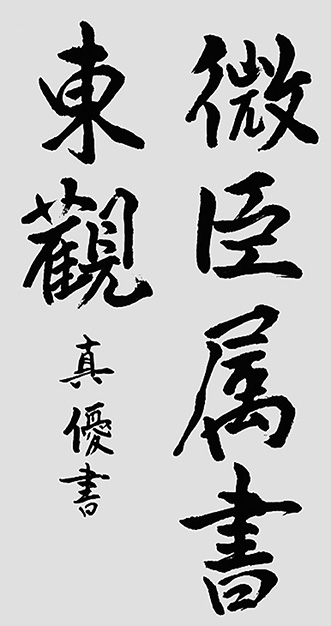 微臣属書
東觀
真優書